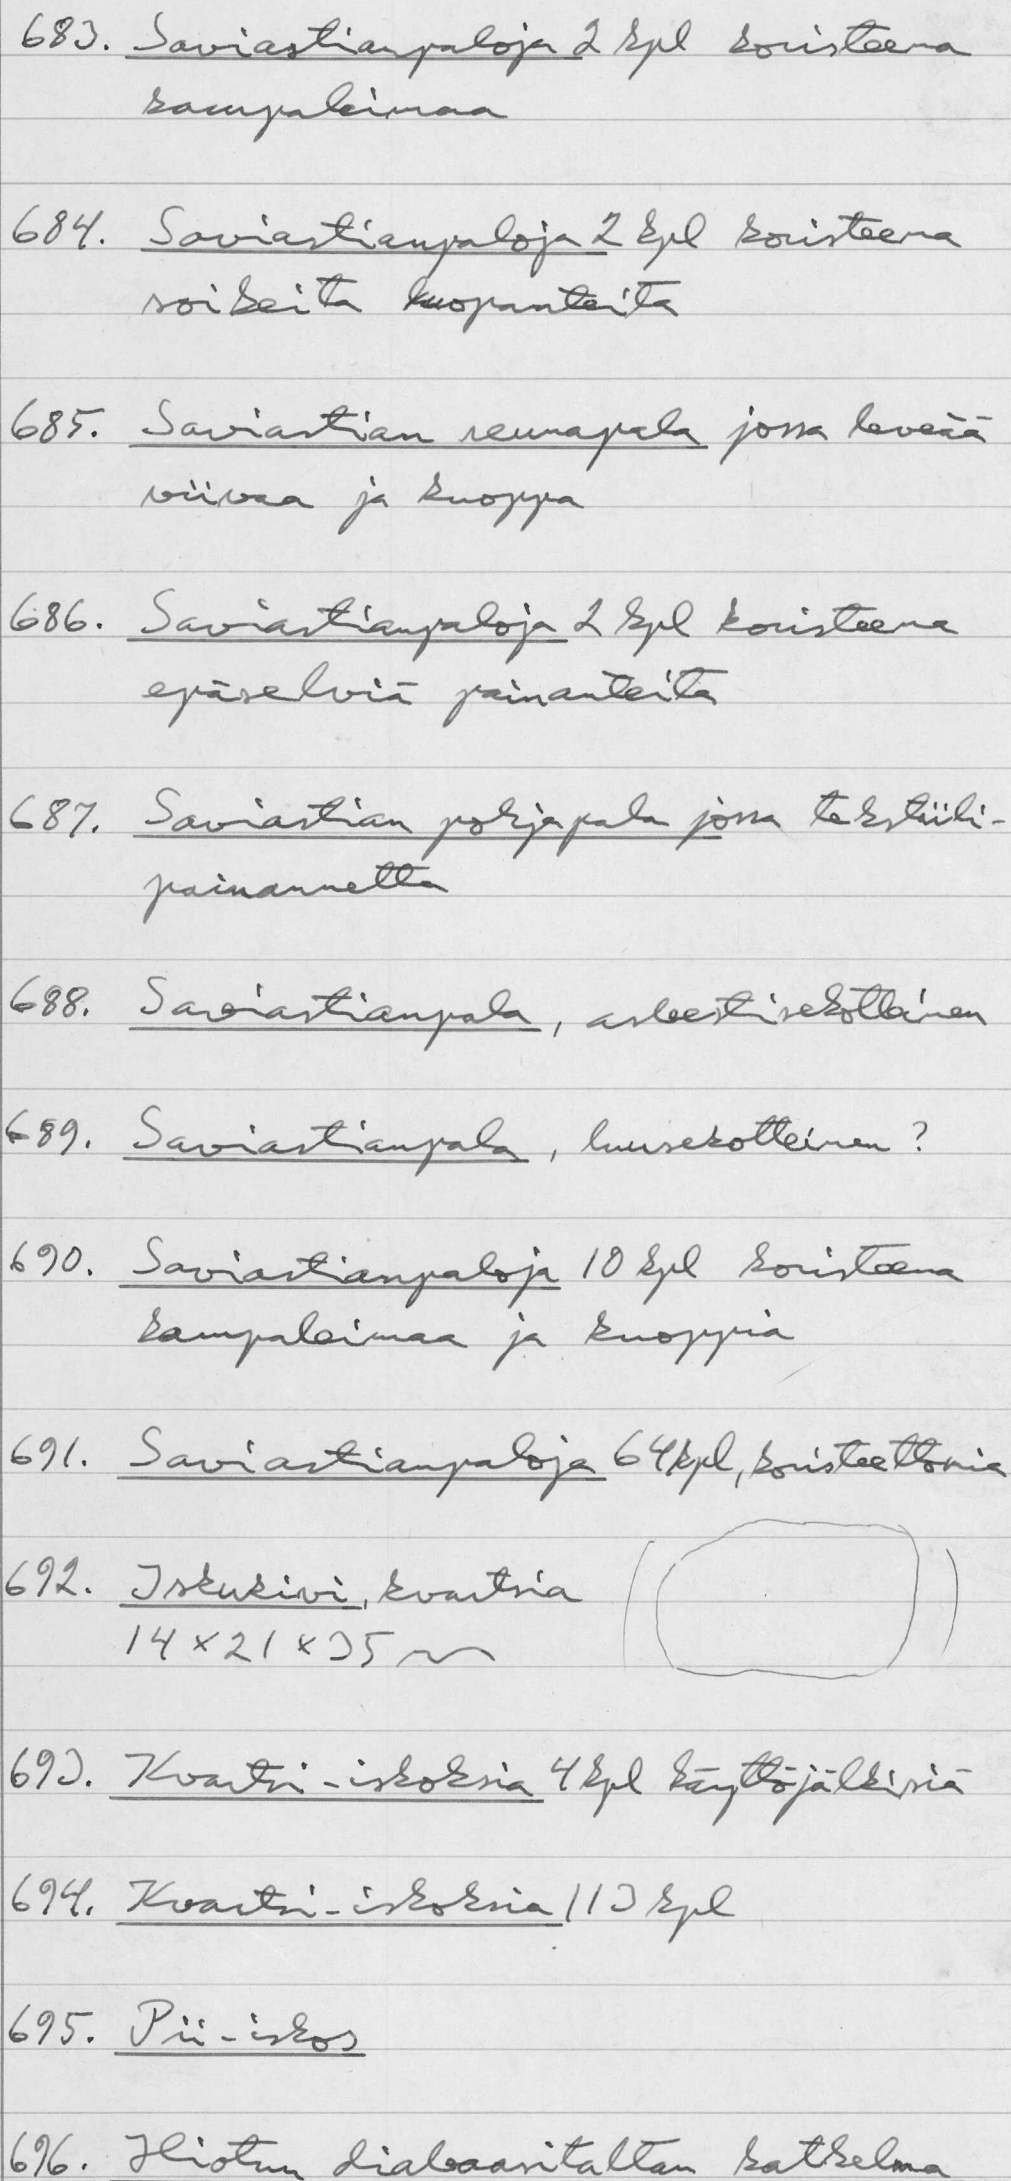 683. Saviastianpaloja 2 kpl koristeena
kampaleimaa
684. Saviastianpaloja 2 kpl koristeena
soikeita kuopanteita
685. Saviastian reunapala jossa leveää
viivaa ja kuoppa
686. Saviastianpaloja 2 kpl koristeena
epäselviä painanteita
687. Saviastian pohjapala jossa tekstiili-
painannetta
688. Saviastianpala, asbestisekotteinen
689. Saviastianpala, luusekotteinen?
690. Saviastianpaloja 10 kpl koristeena
kampaleimaa ja kuoppia
691. Saviastianpaloja 64 kpl, koristeettomia
692. Iskukivi, kvartsia
14 x 21 x 35 mm
693. Kvartsi-iskoksia 4 kpl käyttöjälkisiä
694. Kvartsi-iskoksia 113 kpl
695. Pii-iskos
696. Hiotun diabaasitaltan katkelma